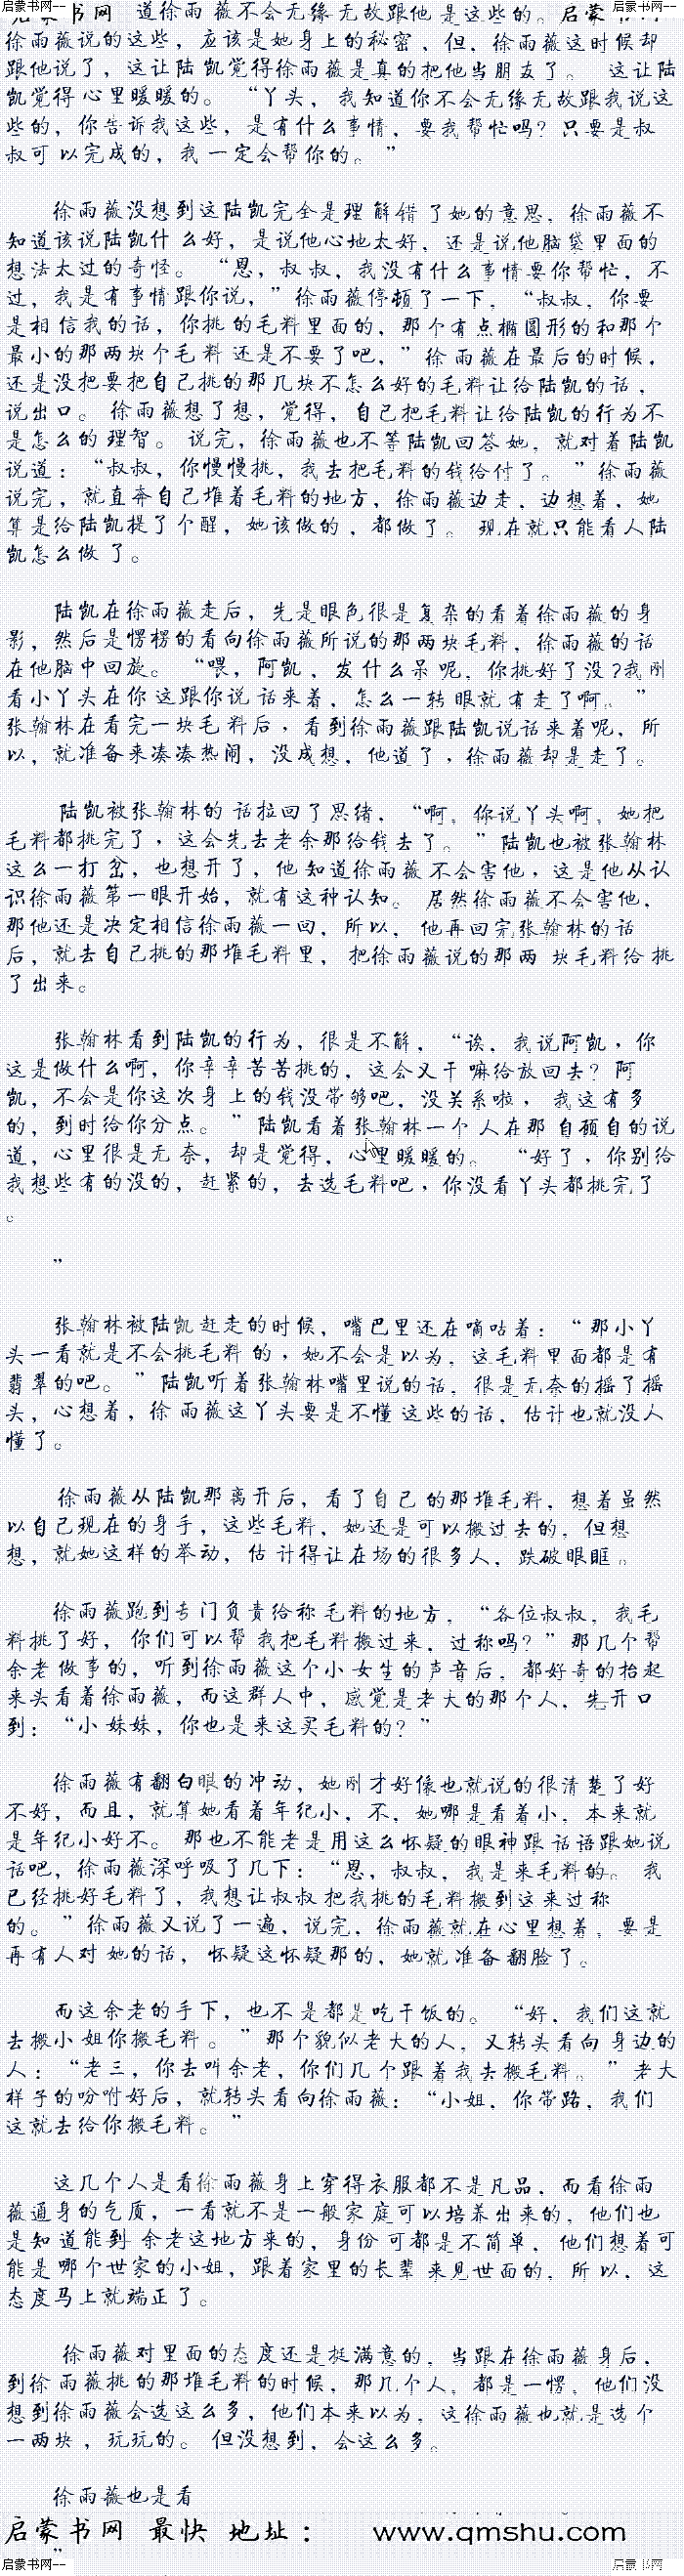 启蒙书网-- 启蒙书网--
道徐雨薇不会无缘无故跟他是这些的。
徐雨薇说的这些，应该是她身上的秘密、但、徐雨薇这时候却
跟他说了，这让陆凯觉得徐雨薇是真的把他当朋友了。 这让陆
凯觉得心里暖暖的。 “丫头，我知道你不会无缘无故跟我说这
些的，你告诉我这些，是有什么事情，要我帮忙吗？只要是叔
叔可以完成的，我一定会帮你的。”
徐雨薇没想到这陆凯完全是理解错了她的意思，徐雨薇不
知道该说陆凯什么好，是说他心地太好，还是说他脑袋里面的
想法太过的奇怪。 “恩，叔叔，我没有什么事情要你帮忙，不
过，我是有事情跟你说，”徐雨薇停顿了一下，“叔叔，你要
是相信我的话，你挑的毛料里面的，那个有点椭圆形的和那个
最小的那两块个毛料还是不要了吧，”徐雨薇在最后的时候，
还是没把要把自己挑的那几块不怎么好的毛料让给陆凯的话，
说出口。 徐雨薇想了想，觉得，自己把毛料让给陆凯的行为不
是怎么的理智。 说完，徐雨薇也不等陆凯回答她，就对着陆凯
说道：“叔叔，你慢慢挑，我去把毛料的钱给付了。”徐雨薇
说完，就直奔自己堆着毛料的地方，徐雨薇边走，边想着，她
算是给陆凯提了个醒，她该做的，都做了。 现在就只能看人陆
凯怎么做了。
陆凯在徐雨薇走后，先是眼色很是复杂的看着徐雨薇的身
影，然后是愣楞的看向徐雨薇所说的那两块毛料，徐雨薇的话
在他脑中回旋。 “喂，阿凯，发什么呆呢，你挑好了没？我刚
看小丫头在你这跟你说话来着，怎么一转眼就有走了啊。”
张翰林在看完一块毛料后，看到徐雨薇跟陆凯说话来着呢，所
以，就准备来凑凑热闹，没成想，他道了，徐雨薇却是走了。
陆凯被张翰林的话拉回了思绪，“啊，你说丫头啊，她把
毛料都挑完了，这会先去老余那给钱去了。”陆凯也被张翰林
这么一打岔，也想开了，他知道徐雨薇不会害他，这是他从认
识徐雨薇第一眼开始，就有这种认知。 居然徐雨薇不会害他，
那他还是决定相信徐雨薇一回，所以，他再回完张翰林的话
后，就去自己挑的那堆毛料里，把徐雨薇说的那两块毛料给挑
了出来。
张翰林看到陆凯的行为，很是不解，“诶，我说阿凯，你
这是做什么啊，你辛辛苦苦挑的，这会又干嘛给放回去？阿
凯，不会是你这次身上的钱没带够吧，没关系啦，我这有多
的，到时给你分点。”陆凯看着张翰林一个人在那自顾自的说
道，心里很是无奈，却是觉得，心里暖暖的。 “好了，你别给
我想些有的没的，赶紧的，去选毛料吧，你没看丫头都挑完了
。
”
张翰林被陆凯赶走的时候，嘴巴里还在嘀咕着：“那小丫
头一看就是不会挑毛料的，她不会是以为，这毛料里面都是有
翡翠的吧。”陆凯听着张翰林嘴里说的话，很是无奈的摇了摇
头，心想着，徐雨薇这丫头要是不懂这些的话，估计也就没人
懂了。
徐雨薇从陆凯那离开后，看了自己的那堆毛料，想着虽然
以自己现在的身手，这些毛料，她还是可以搬过去的，但想
想，就她这样的举动，估计得让在场的很多人，跌破眼眶。
徐雨薇跑到专门负责给称毛料的地方，“各位叔叔，我毛
料挑了好，你们可以帮我把毛料搬过来，过称吗？”那几个帮
余老做事的，听到徐雨薇这个小女生的声音后，都好奇的抬起
来头看着徐雨薇，而这群人中，感觉是老大的那个人，先开口
到：“小妹妹，你也是来这买毛料的？”
徐雨薇有翻白眼的冲动，她刚才好像也就说的很清楚了好
不好，而且，就算她看着年纪小，不，她哪是看着小，本来就
是年纪小好不。 那也不能老是用这么怀疑的眼神跟话语跟她说
话吧，徐雨薇深呼吸了几下：“恩，叔叔，我是来毛料的。 我
已经挑好毛料了，我想让叔叔把我挑的毛料搬到这来过称
的。”徐雨薇又说了一遍，说完，徐雨薇就在心里想着，要是
再有人对她的话，怀疑这怀疑那的，她就准备翻脸了。
而这余老的手下，也不是都是吃干饭的。 “好，我们这就
去搬小姐你搬毛料。”那个貌似老大的人，又转头看向身边的
人：“老三，你去叫余老，你们几个跟着我去搬毛料。”老大
样子的吩咐好后，就转头看向徐雨薇：“小姐，你带路，我们
这就去给你搬毛料。”
这几个人是看徐雨薇身上穿得衣服都不是凡品，而看徐雨
薇通身的气质，一看就不是一般家庭可以培养出来的，他们也
是知道能到余老这地方来的，身份可都是不简单，他们想着可
能是哪个世家的小姐，跟着家里的长辈来见世面的，所以，这
态度马上就端正了。
徐雨薇对里面的态度还是挺满意的，当跟在徐雨薇身后，
到徐雨薇挑的那堆毛料的时候，那几个人，都是一愣，他们没
想到徐雨薇会选这么多，他们本来以为，这徐雨薇也就是选个
一两块，玩玩的。 但没想到，会这么多。
徐雨薇也是看
启蒙书网 最快 地址： www.qmshu.com
”
启蒙书网-- 启蒙书网--